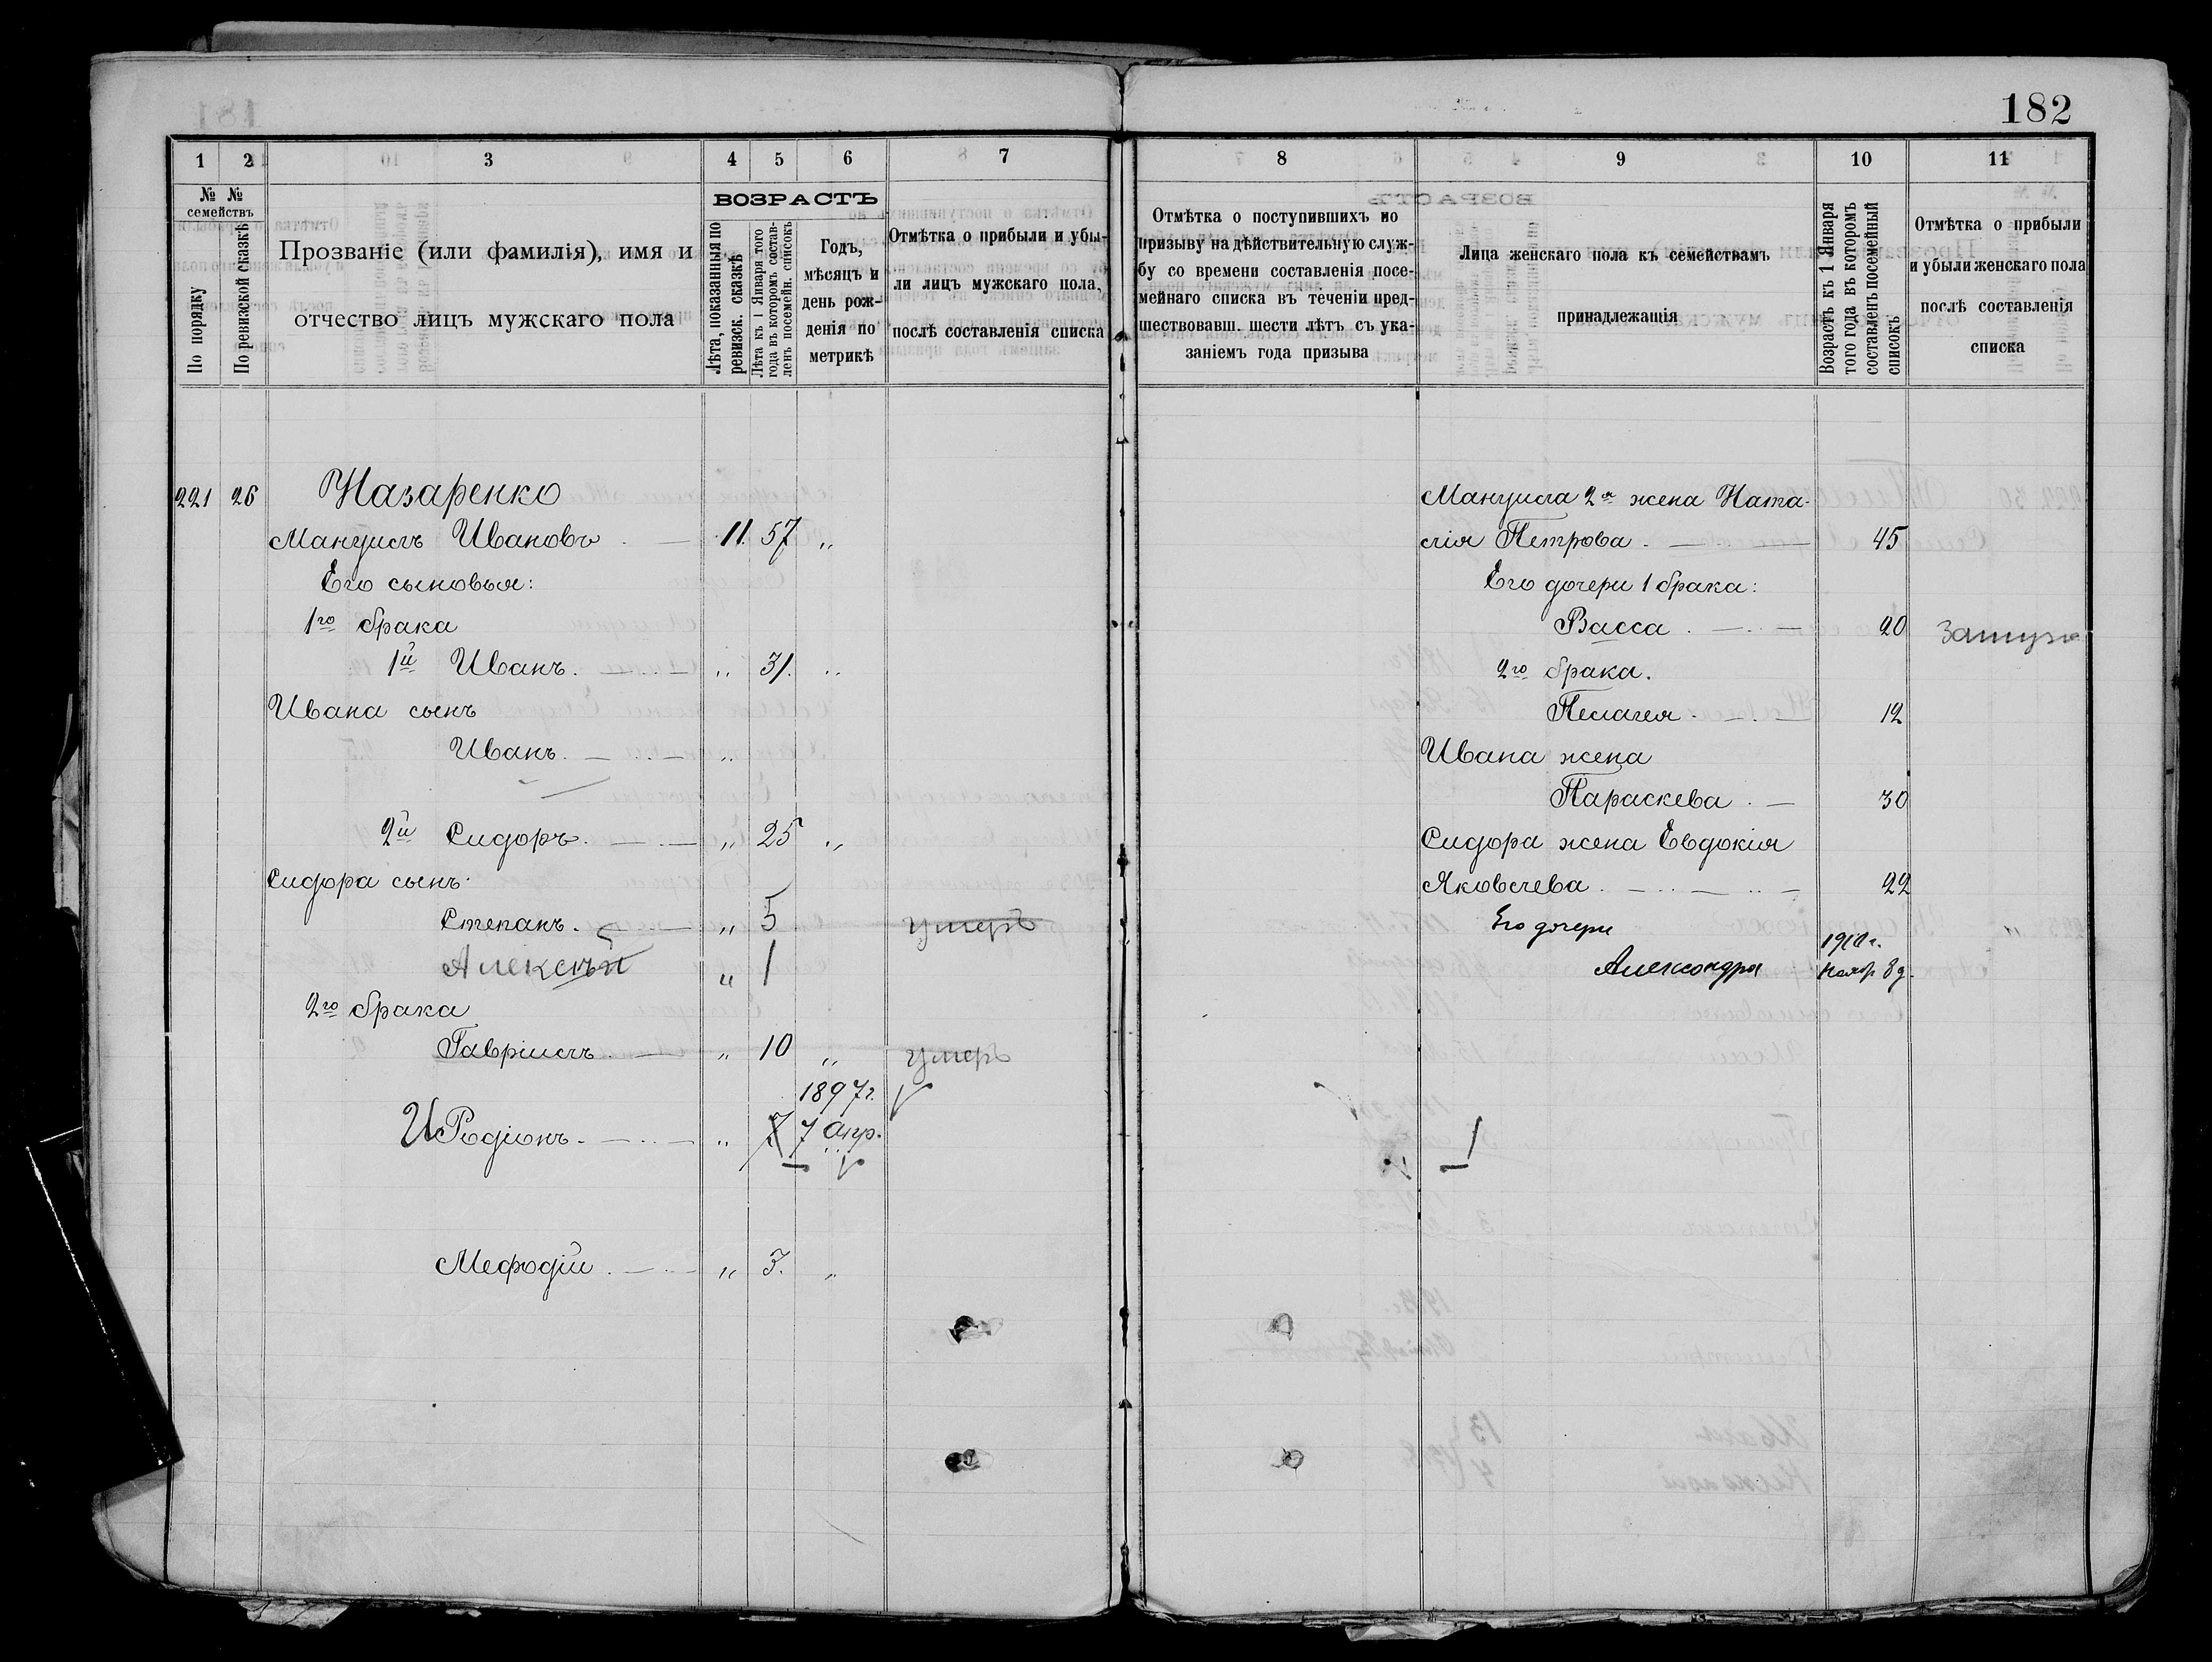 182
1 2 3 4 5 6 7
№ № семействъ
По порядку
По ревизской сказкѣ
Прозваніе (или фамилія), имя и
отчество лицъ мужскаго пола
ВОЗРАСТЪ
Лѣта, показанныя по
ревизск. сказкѣ
Лѣта къ 1 Января того
года въ которомъ состав-
ленъ посемейн. списокъ
Годъ,
мѣсяцъ и
день рож-
денія по
метрикѣ
Отмѣтка о прибыли и убы-
ли лицъ мужскаго пола,
послѣ составленія списка
221 26 Назаренко
Мануилъ Ивановъ 11. 57 „
Его сыновья:
1го брака
1й Иванъ. „ 31. „
Ивана сынъ
Иванъ. „
2й Сидоръ. „ 25 „
Сидора сынъ
Степанъ. „ 5 умеръ
Алексѣй „ 1
2го брака
Гавріилъ. „ 10 „ умеръ
1897г.
И Родіонъ. „ 7 7 Апр.
Мефодій. „ 3. „
8 9 10 11
Отмѣтка о поступившихъ по
призыву на дѣйствительную служ-
бу со времени составленія посе-
мейнаго списка въ теченіи пред-
шествовавш. шести лѣтъ съ ука-
заніемъ года призыва
Лица женскаго пола къ семействамъ
принадлежащія
Возрастъ къ 1 Января
того года въ которомъ
составленъ посемейный
списокъ
Отмѣтка о прибыли
и убыли женскаго пола
послѣ составленія
списка
Мануила 2я жена Ната-
лія Петрова. 45
Его дочери 1 брака:
Васса. 20 замуж
2го брака.
Пелагея. 12
Ивана жена
Параскева. 30
Сидора жена Евдокія
Яковлева. 22
Его дочери
1910г.
Александра Нояб. 8 д.
1